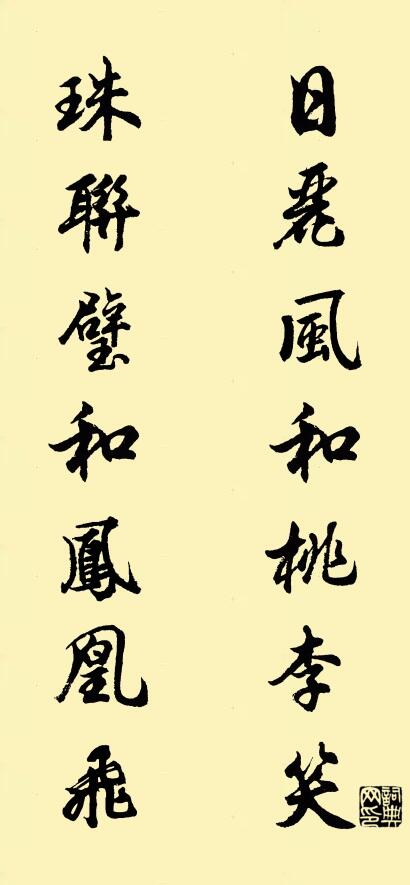 日麗風和桃李笑
珠聯璧和鳳凰飛
詞典網印